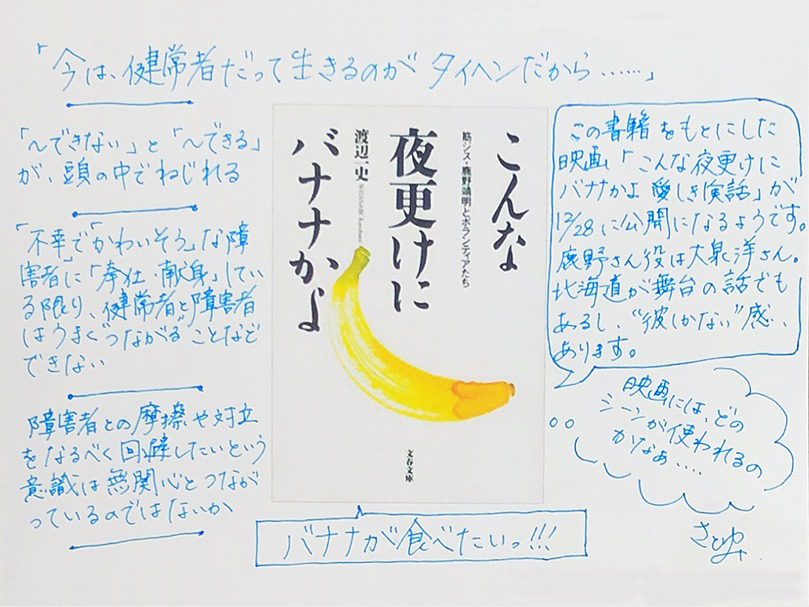 「今は、健常者だって生きるのが タイヘンだから……」
「〜できない」と「〜できる」
が、頭の中でねじれる
「不幸で「かわいそう」な障
害者に「奉仕・献身」してい
る限り、健常者と障害者
はうまく“つながる”ことなど
できない
障害者との摩擦や対立
をなるべく回避したいという
意識は無関心とつなが
っているのではないか
こんな
夜更けに
バナナかよ
筋ジス・鹿野靖明とボランティアたち
渡辺一史
文春文庫
バナナが食べたいっ!!!
この書籍をもとにした
映画「こんな夜更けに
バナナかよ 愛しき実話」が
12/28に公開になるようです。
鹿野さん役は大泉洋さん。
北海道が舞台の話でも
あるし、“彼しかない”感、
あります。
映画には、どの
シーンが使われるの
かなぁ....
さとゆ